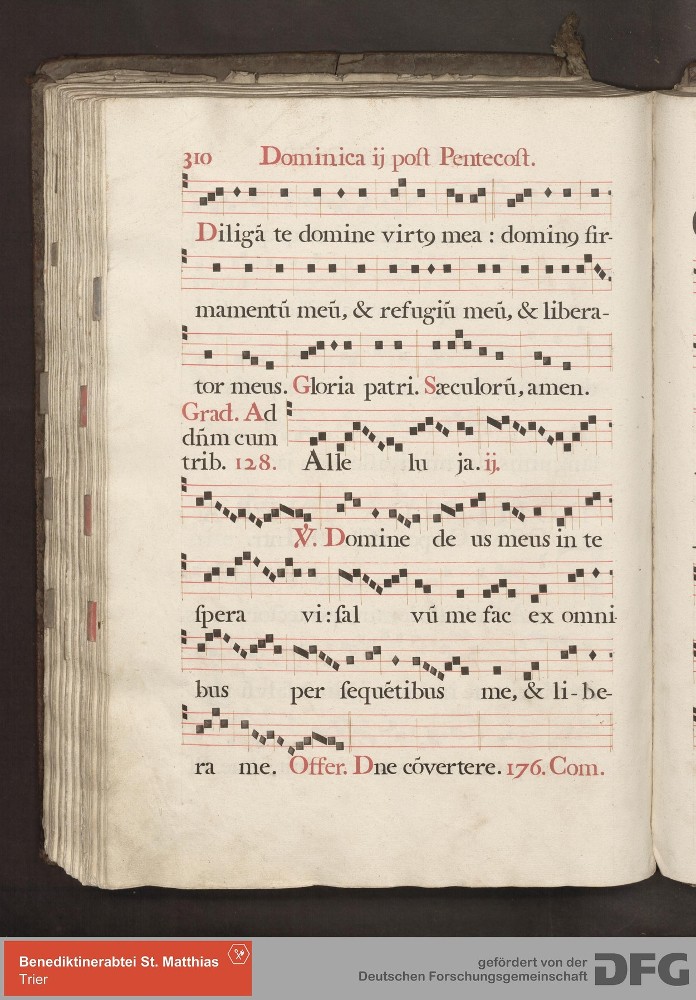 310 Dominica ij poſt Pentecoſt.
Diligã te domine virtꝰ mea : dominꝰ fir-
mamentũ meũ, & refugiũ meũ, & libera-
tor meus. Gloria patri. Sæculorũ, amen.
Grad. Ad
dñm cum
trib. 128. Alle lu ja. ij.
℣. Domine de us meus in te
ſpera vi : ſal vũ me fac ex omni-
bus per ſequẽtibus me, & li-be-
ra me. Offer. Dne cõvertere. 176. Com.
Benediktinerabtei St. Matthias
Trier
gefördert von der
Deutschen Forschungsgemeinschaft DFG